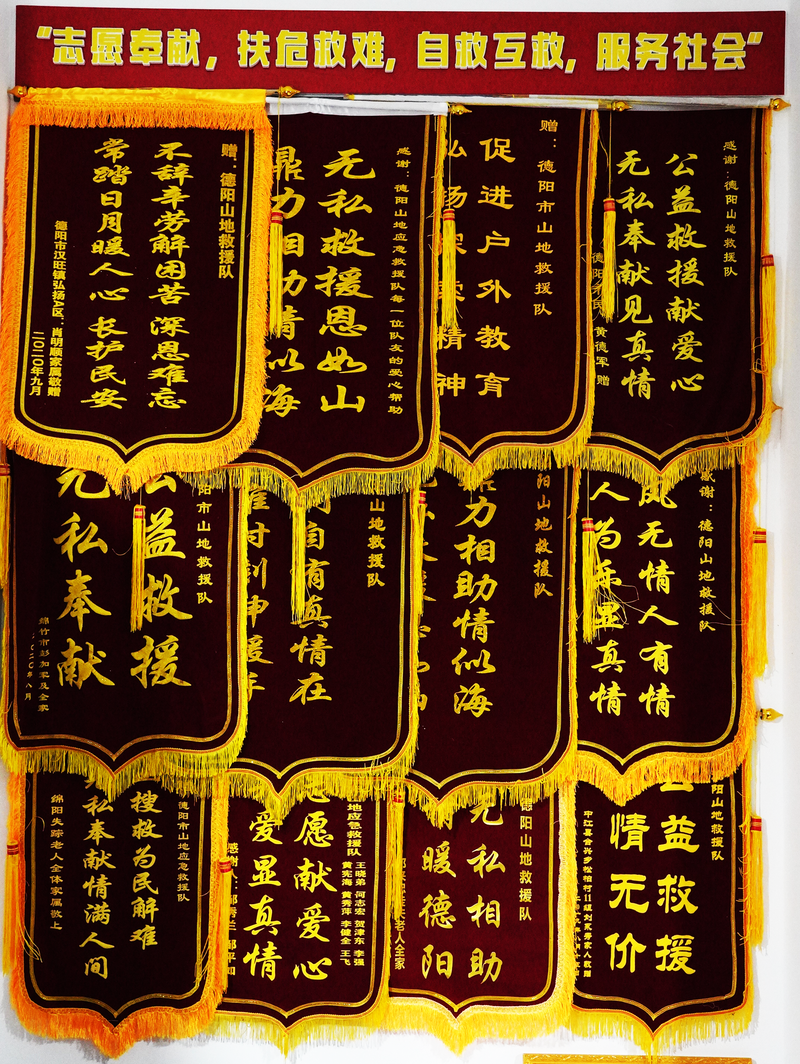 “志愿奉献，扶危救难，自救互救，服务社会”
赠：德阳山地救援队
不辞辛劳解困苦 深恩难忘
常踏日月暖人心 长护民安
德阳市汉旺镇弘扬社区：肖明顺家属敬赠
二〇二〇年九月
感谢：德阳山地应急救援队每一位队友的爱心帮助
无私救援恩如山
鼎力相助情似海
赠：德阳市山地救援队
促进户外教育
弘扬探索精神
感谢：德阳山地救援队
公益救援献爱心
无私奉献见真情
黄德军 赠
阳市山地救援队
公益救援
无私奉献
绵竹市彭加军及全家
二〇二〇年八月
山地救援队
自有真情在
时刻伸援手
阳山地救援队
鼎力相助情似海
感谢：德阳山地救援队
风无情人有情
人为乐显真情
德阳市山地应急救援队
搜救为民解难
无私奉献情满人间
绵阳失踪老人全体家属敬上
山地应急救援队
王晓弟 何志宏 贺津东 李强
黄宪海 黄秀萍 李健全 王飞
志愿献爱心
爱显真情
感谢
德阳山地救援队
无私相助
情暖德阳
老人全家
阳山地救援队
公益救援
情无价
中江县合兴乡松柏村11组刘